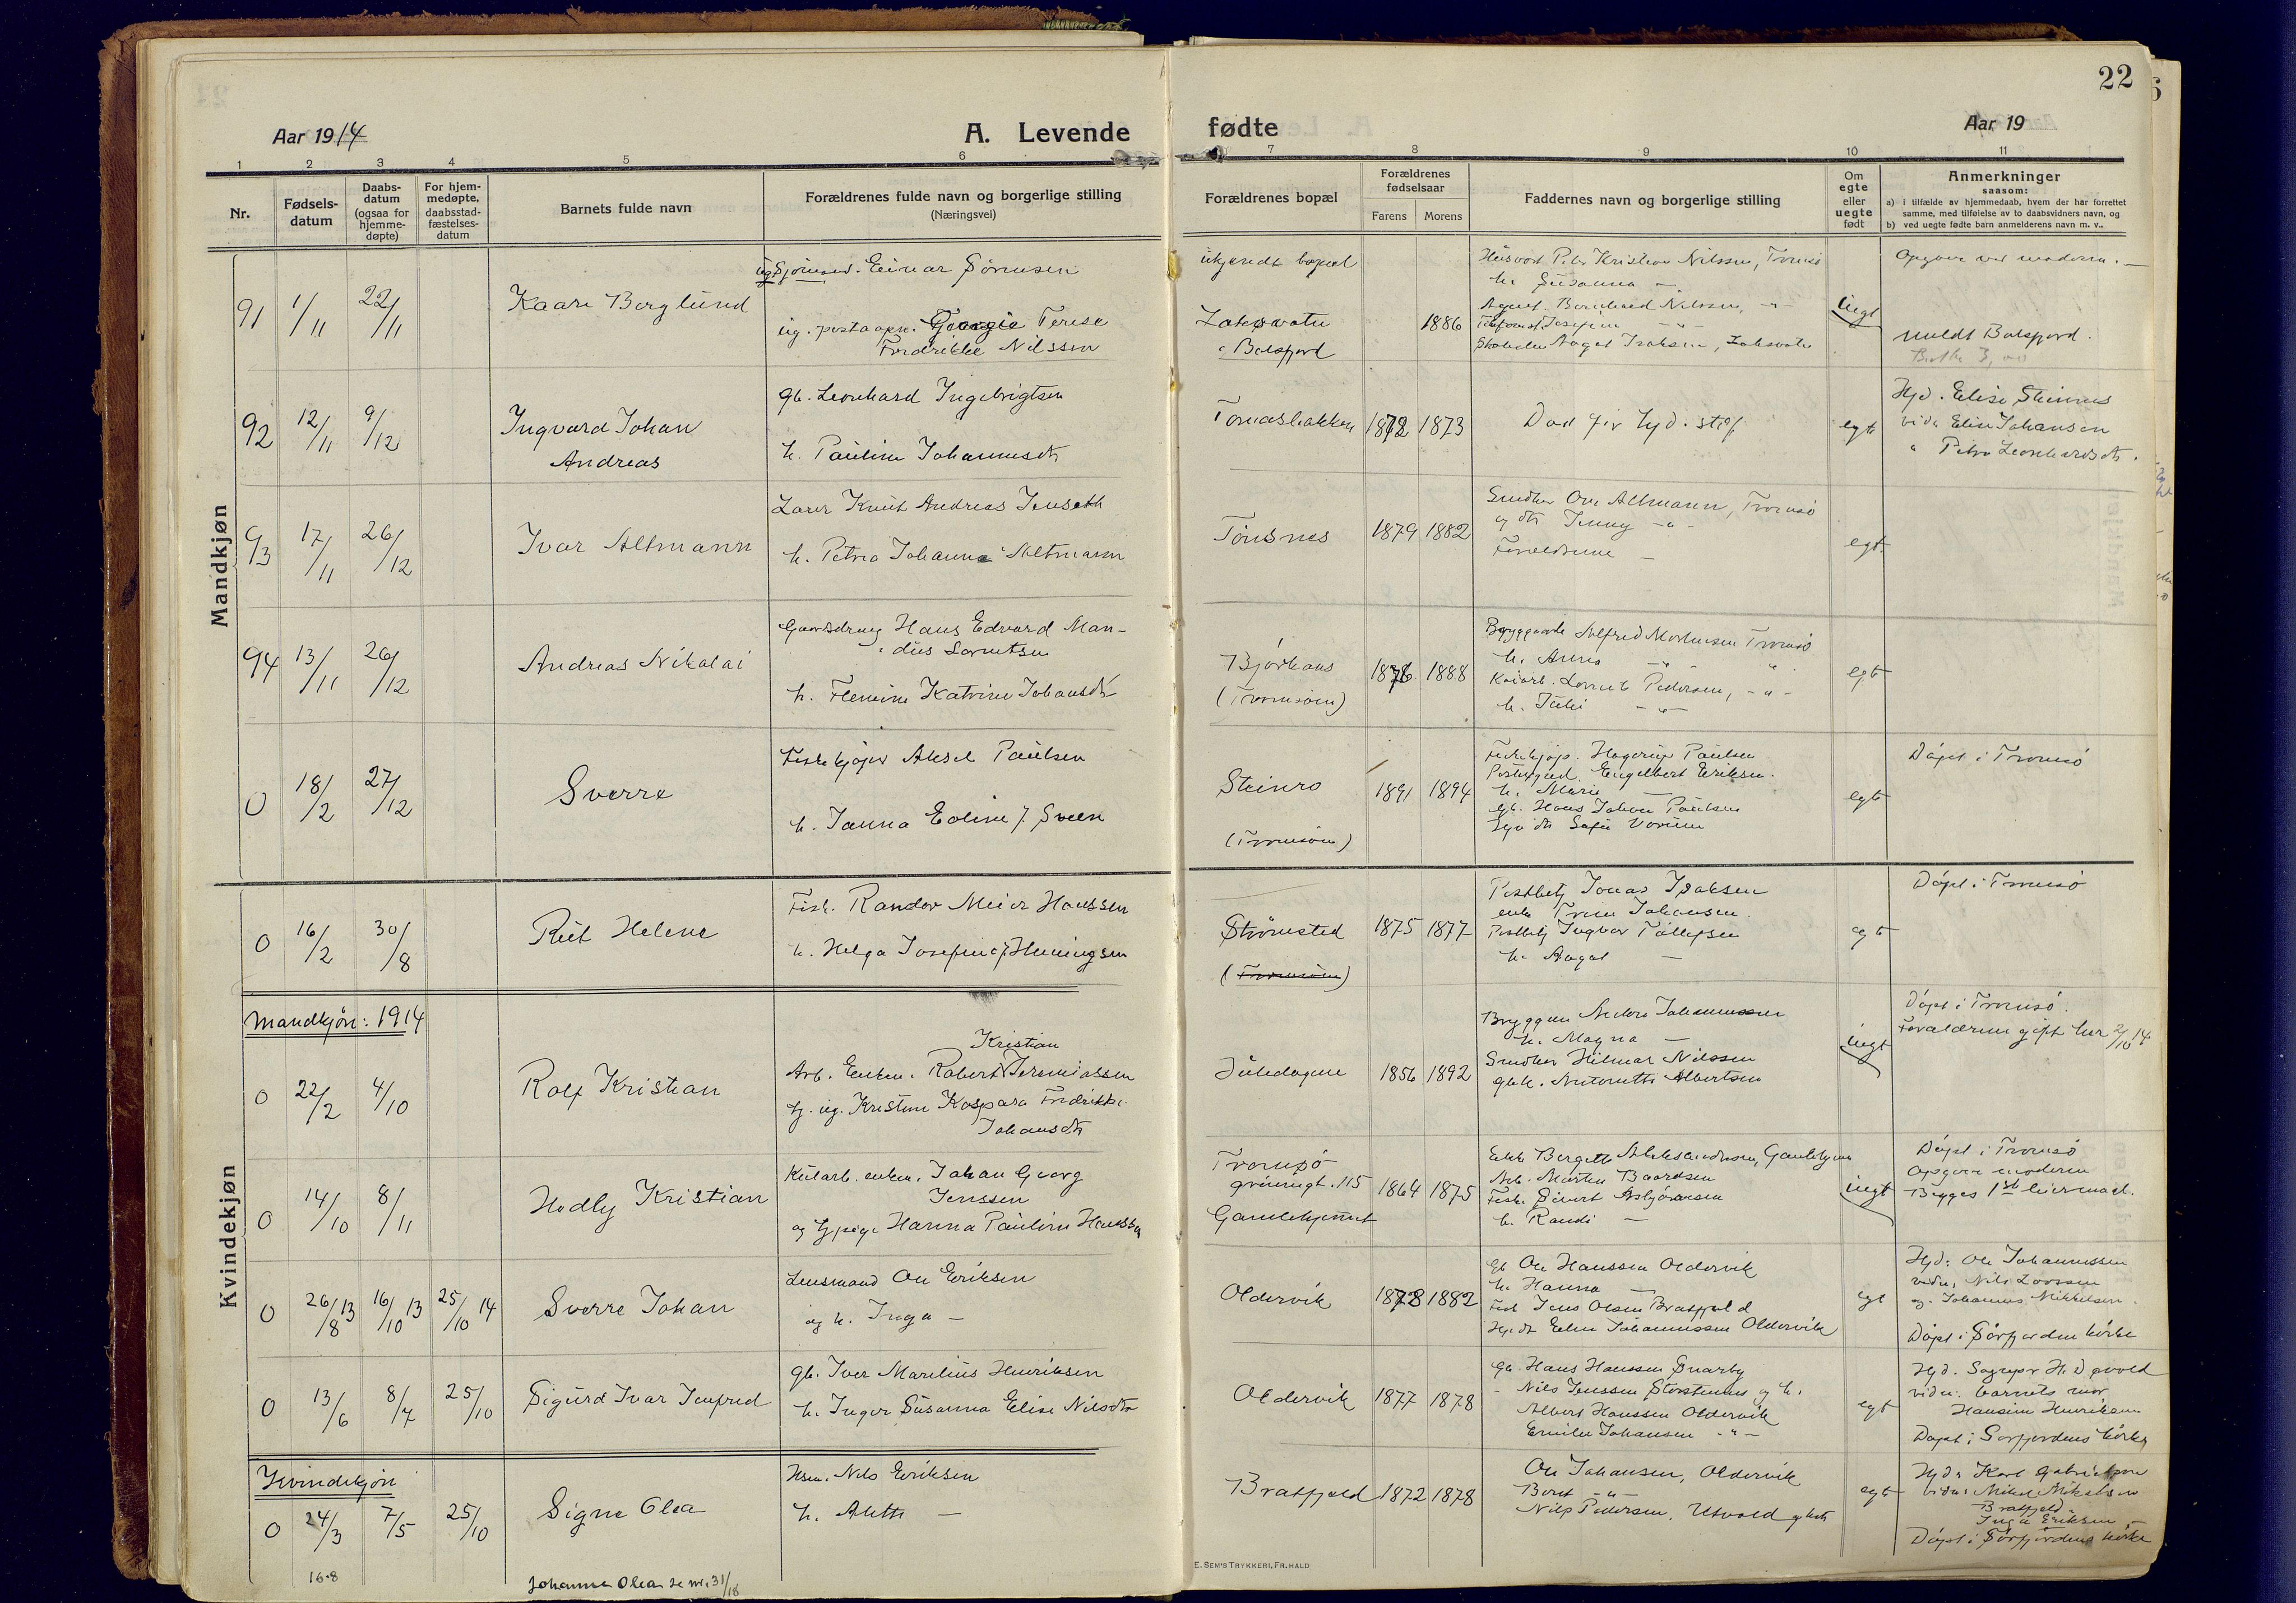 22
Aar 1914
A. Levende
fødte
Aar 19
1 2 3 4 5 6 7 8 9 10 11
Nr.
Fødsels-
datum
Daabs-
datum
(ogsaa for
hjemme-
døpte)
For hjem-
medøpte,
daabsstad-
fæstelses-
datum
Barnets fulde navn
Forældrenes fulde navn og borgerlige stilling
(Næringsvei)
Forældrenes bopæl
Forældrenes
fødselsaar
Farens Morens
Faddernes navn og borgerlige stilling
Om
egte
eller
uegte
født
Anmerkninger
saasom:
a) i tilfælde av hjemmedaab, hvem der har forrettet
samme, med tilføielse av to daabsvidners navn, og
b) ved uegte fødte barn anmelderens navn m. v..
Mandkjøn
91 1/11 22/11 Kaare Berglund
ug. Sjømand. Einar Sørensen
ug. Georgie Terese
Fredrikke Nilssen
ukjendt bopæl
Balsfjord
1886
Peder Kristian Nilssen, Tromsø
h. Susanna —
Agent. Bernhard Nilssen, -"-
uegt
Opgave ved moderen. —
meldt Balsfjord.
92 12/11 9/12 Ingvard Johan
Andreas
gb. Leonhard Ingebrigtsen
h. Pauline Johannesdtr
Tomasbakken 1872 1873
egte
Hjd. Elise Steinnes
vidn Elise Johansen
" Petra Leonhardsdtr.
93 17/11 26/12 Ivar Altmann
Lærer Knut Andreas Jenseth
h. Petra Johanna Altmann
Tønsnes 1879 1882
Snedker Ole Altmann, Tromsø
og dtr Jenny -"-
Forældrene —
egt.
94 13/11 26/12 Andreas Nikolai
Gaardsdreng Hans Edvard Man-
dius Lorntsen
h. Katrine Johansdtr
Bjørkaas
(Tromsøen)
1876 1888
Alfred Mortensen Tromsø
h. Anna -"- "
Kaiarb. Lornts Pedersen, -"-
h. -"-
egt
0 18/2 27/12 Sverre
Fiskekjøper Aksel Paulsen
h. Janna Eoline f. Sveen
Steinro
(Tromsøen)
1891 1894
Fiskekjøp. Hagerup Paulsen
Engelbert Eriksen.
h. Marie —
gb. Hans Johan Paulsen
egt
Døpt i Tromsø
Kvindekjøn
0 16/2 30/8 Rut Helene
Fisk. Randor Meier Hanssen
h. Helga Josefine f. Henningsen
Strømsted
(Tromsøen)
1875 1877
Jonas Isaksen
enke Trine Johansen.
Ingvar Tollefsen
h. Aagot —
egt
Døpt i Tromsø
Mandkjøn: 1914
0 22/2 4/10 Rolf Kristian
Kristian
Arb. Enkem. Robert Jeremiassen
tj. ug. Kristine Kaspara Fredrikke
Johansdtr
Juledagene 1856 1892
Anders Johannessen
h. Magna —
Snedker Hilmar Nilssen
gbk. Antonette Albertsen
uegt
Døpt i Tromsø.
Forældrene gift her 2/10 14
0 14/10 8/11 Hedly Kristian
Kularb. enkem. Johan Georg
Jenssen
og tj.pige Hanna Pauline Hanssen
Tromsø
grønnegt. 115
Gamlehjemmet
1864 1875
Enke Bergitte Aleksandersen, Gamlehjem
Arb. Morten Baardsen
Fisk. Sivert Asbjørnsen
h. Randi —
uegt
Døpt i Tromsø
Opgave moderen
Begges 1st leiermaal.
0 26/8 13 16/10 13 25/10 14 Sverre Johan
Lensmand Ole Eriksen
og h. Inga —
Oldervik 1878 1882
gb Ole Hanssen Oldervik
h. Hanna —
Fisk Jens Olsen Bratfjeld
Elen Johannessen Oldervik
egt
Hjd: Ole Johannessen
vidn. Nils Larssen
og Johannes Mikkelsen.
Døpt i Sørfjorden kirke
0 13/6 8/7 25/10 Sigurd Ivar Jenfred
gb. Iver Marelius Henriksen
h. Inger Susanna Elise Nilsdtr
Oldervik 1877 1878
gb. Hans Hanssen Snarby
- Nils Jenssen Storsteinnes og h.
Albert Hanssen Oldervik
Emilie Johansen -"-
egt
vidn. barnets mor
Hansine Henriksen
Døpt i Sørfjordens kirke
Kvindekjøn
0 24/3 7/5 25/10 Signe Olea
Nils Eriksen
h. Alette —
Bratfjeld 1872 1878
Ole Johansen, Oldervik
Beret -"-
Nils Pedersen,
egt
Hjd: Karl Gabrielsen
vidn: Mikal Mikalsen
Bratfjeld
Inga Eriksen —
Døpt i Sørfjordens kirke
16-8
Johanna Olea se nr. 31/18
E. SEM'S TRYKKERI, FR.HALD